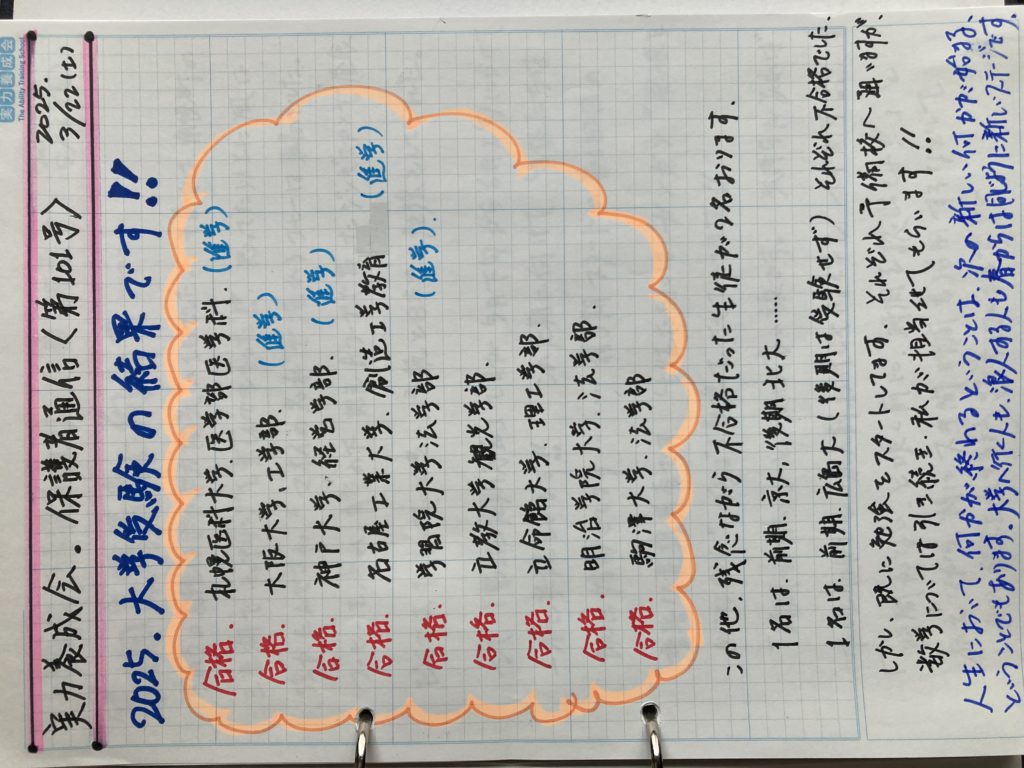 実力養成会
The Ability Training School
実力養成会. 保護者通信〈第101号〉
2025.
3/22(土)
2025. 大学受験の結果です!!
合格. 札幌医科大学、医学部医学科. (進学)
合格. 大阪大学、工学部. (進学)
合格. 神戸大学、経営学部. (進学)
合格. 名古屋工業大学、創造工学教育 (進学)
合格. 学習院大学法学部 (進学).
合格. 立教大学観光学部.
合格. 立命館大学、理工学部.
合格. 明治学院大学、法学部.
合格. 駒澤大学、法学部
この他、残念ながら不合格だった生徒が2名おります.
1名は、前期、京大、後期北大……
1名は、前期、広島大(後期は受験せず) それぞれ不合格でした.
しかし、既に勉強をスタートしてます. それぞれ予備校へ通いますが、
数学については引き続き、私が担当してもらいます!!
人生において、何かが終わるということは、次の新しい何かが始まる、
ということでもあります。大学へ行く人も、浪人する人も春からは同じように新しいステージです。